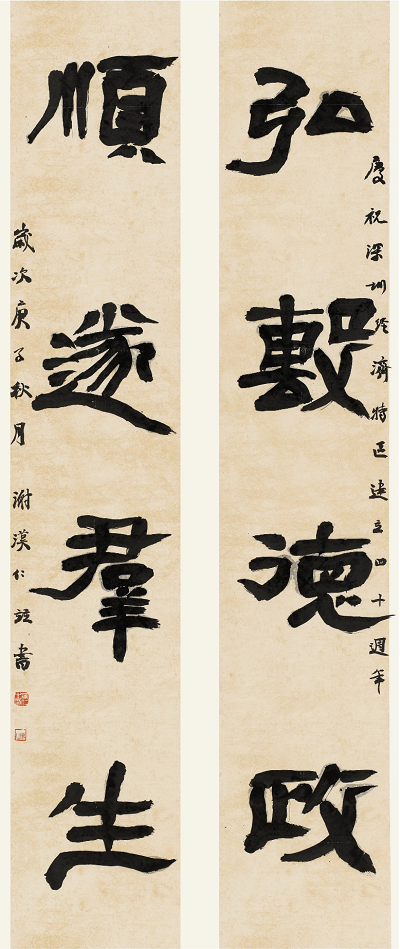 弘敷德政
慶祝深圳经濟特区建立四十週年
順遂羣生
歲次庚子秋月 謝漢仁書